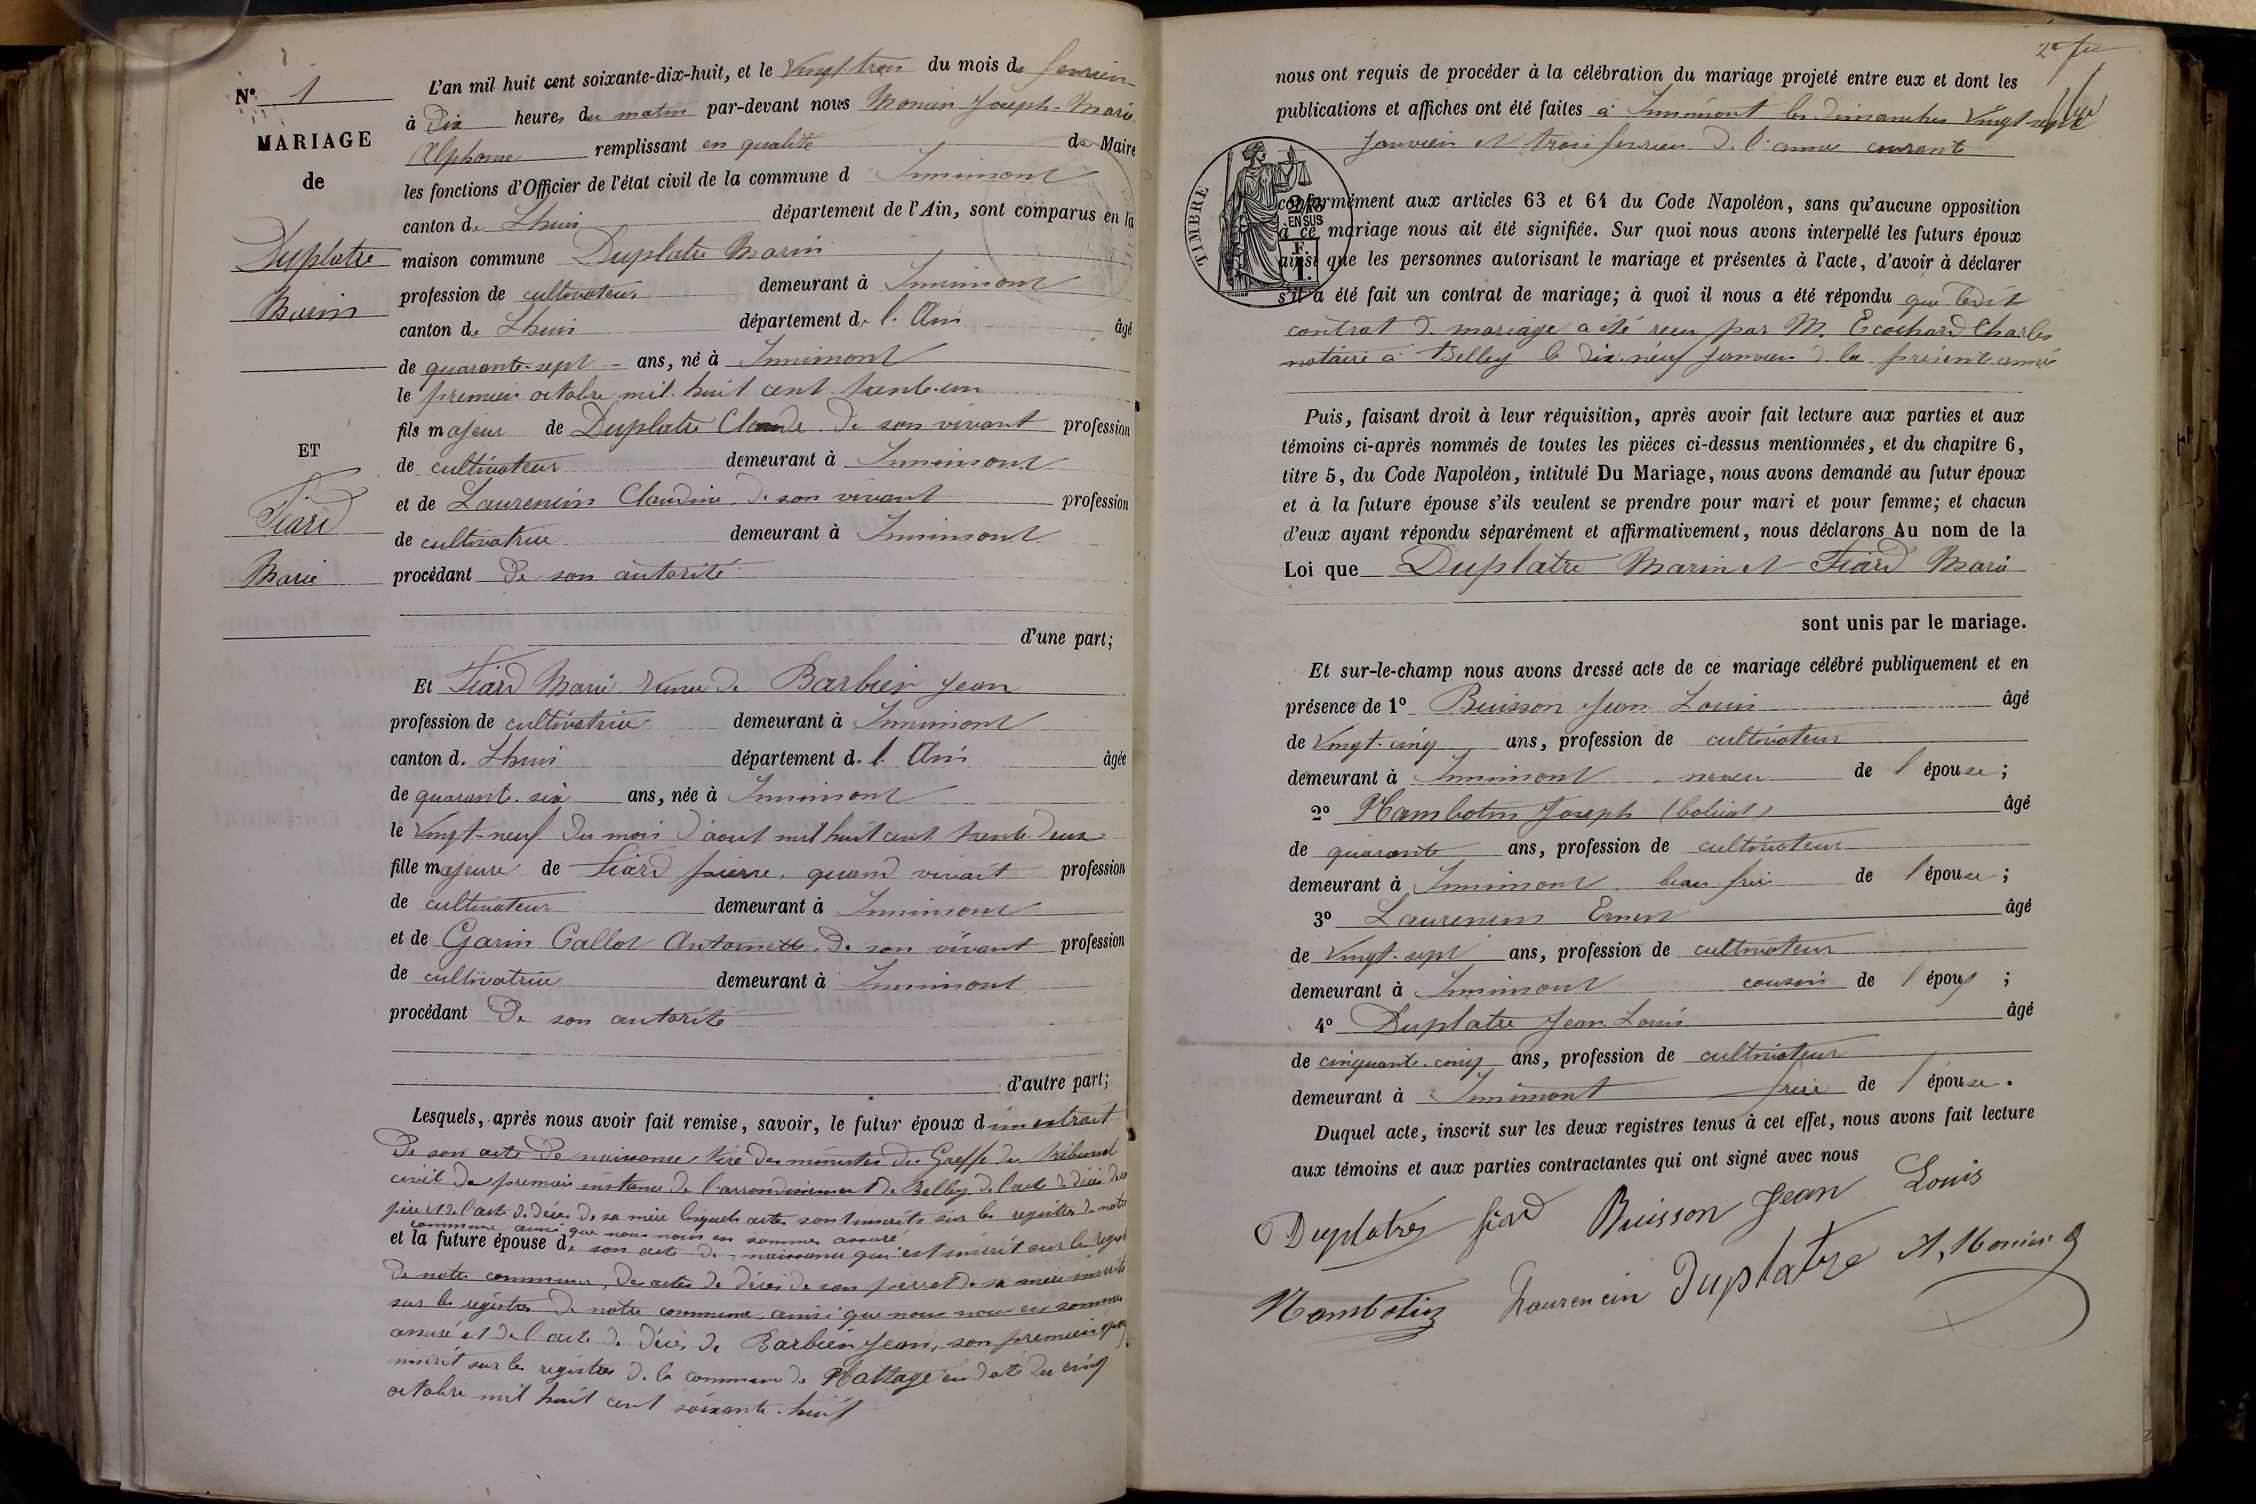 Nº 1
MARIAGE
de
Duplatre
Marin
ET
Fiard
Marie
L'an mil huit cent soixante-dix-huit, et le Vingt trois du mois de fevrier
à Dix heures du matin par-devant nous Monier Joseph-Marie
Alphonse remplissant en qualité de Maire
les fonctions d'Officier de l'état civil de la commune d Innimont
canton de Lhuis département de l'Ain, sont comparus en la
maison commune Duplatre Marin
profession de cultivateur demeurant à Innimont
canton de Lhuis département de l'Ain âgé
de quarante-sept ans, né à Innimont
le premier octobre mil huit cent trente-un
fils majeur de Duplatre Claude de son vivant profession
de cultivateur demeurant à Innimont
et de Laurencin Claudine de son vivant profession
de cultivatrice demeurant à Innimont
procédant de son autorité
d'une part;
Et Fiard Marie veuve de Barbier Jean
profession de cultivatrice demeurant à Innimont
canton d. Lhuis département d. l'Ain âgée
de quarante-six ans, née à Innimont
le Vingt-neuf du mois d'aout mil huit cent trente deux
fille majeure de Fiard pierre, quand vivait profession
de cultivateur demeurant à Innimont
et de Garin Callot Antoinette de son vivant profession
de cultivatrice demeurant à Innimont
procédant De son autorité
d'autre part;
Lesquels, après nous avoir fait remise, savoir, le futur époux d'un extrait
de son acte de naissance tiré des minutes du Greffe du tribunal
civil de premiere instance de l'arrondissement de Belley, de l'acte de décès de son
père et de l'acte de décès de sa mère lesquels actes sont inscrits sur les registres de notre
commune ainsi que nous nous en sommes assuré
et la future épouse de son acte de naissance qui est inscrit sur les registres
de notre commune, des actes de décès de son père et de sa mère inscrits
sur les registres de notre commune ainsi que nous nous en sommes
assuré et de l'acte de décès de Barbier Jean, son premier époux,
inscrit sur les registres de la commune de en date du cinq
octobre mil huit cent soixante-huit
2e
nous ont requis de procéder à la célébration du mariage projeté entre eux et dont les
publications et affiches ont été faites à Innimont les dimanches Vingt sept
Janvier et trois fevrier de l'année courante
TIMBRE
2/10
EN SUS
F.
1.
conformément aux articles 63 et 64 du Code Napoléon, sans qu'aucune opposition
à ce mariage nous ait été signifiée. Sur quoi nous avons interpellé les futurs époux
ainsi que les personnes autorisant le mariage et présentes à l'acte, d'avoir à déclarer
s'il a été fait un contrat de mariage; à quoi il nous a été répondu que ledit
contrat de mariage a été reçu par M. Ecochard Charles
notaire à Belley le dix-neuf Janvier de la présente année
Puis, faisant droit à leur réquisition, après avoir fait lecture aux parties et aux
témoins ci-après nommés de toutes les pièces ci-dessus mentionnées, et du chapitre 6,
titre 5, du Code Napoléon, intitulé Du Mariage, nous avons demandé au futur époux
et à la future épouse s'ils veulent se prendre pour mari et pour femme; et chacun
d'eux ayant répondu séparément et affirmativement, nous déclarons Au nom de la
Loi que Duplatre Marin et Fiard Marie
sont unis par le mariage.
Et sur-le-champ nous avons dressé acte de ce mariage célébré publiquement et en
présence de 1º Buisson Jean Louis âgé
de Vingt-cinq ans, profession de cultivateur
demeurant à Innimont neveu de l'épouse;
2º Mambotin Joseph âgé
de quarante ans, profession de cultivateur
demeurant à Innimont beau frère de l'épouse;
3º Laurencin Ernest âgé
de Vingt-sept ans, profession de cultivateur
demeurant à Innimont cousin de l'époux;
4º Duplatre Jean Louis âgé
de cinquante-cinq ans, profession de cultivateur
demeurant à Innimont frère de l'épouse.
Duquel acte, inscrit sur les deux registres tenus à cet effet, nous avons fait lecture
aux témoins et aux parties contractantes qui ont signé avec nous
Duplatre fiard Buisson Jean Louis
Mambotin Laurencin Duplatre A, Monier